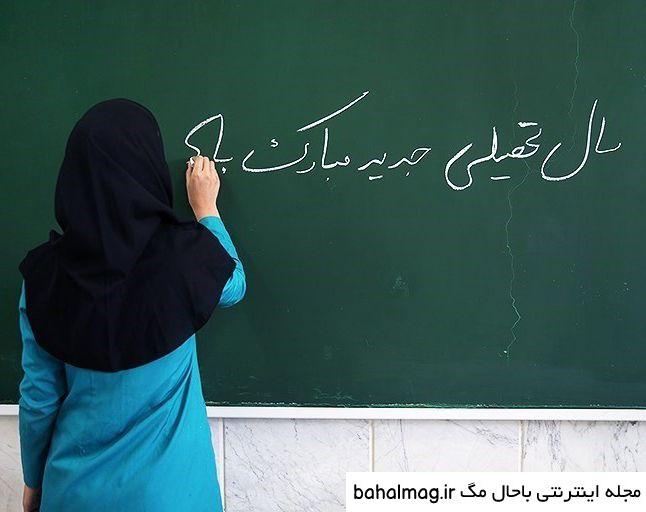 سال تحصیلی جدید مبارک با
مجله اینترنتی باحال مگ bahalmag.ir